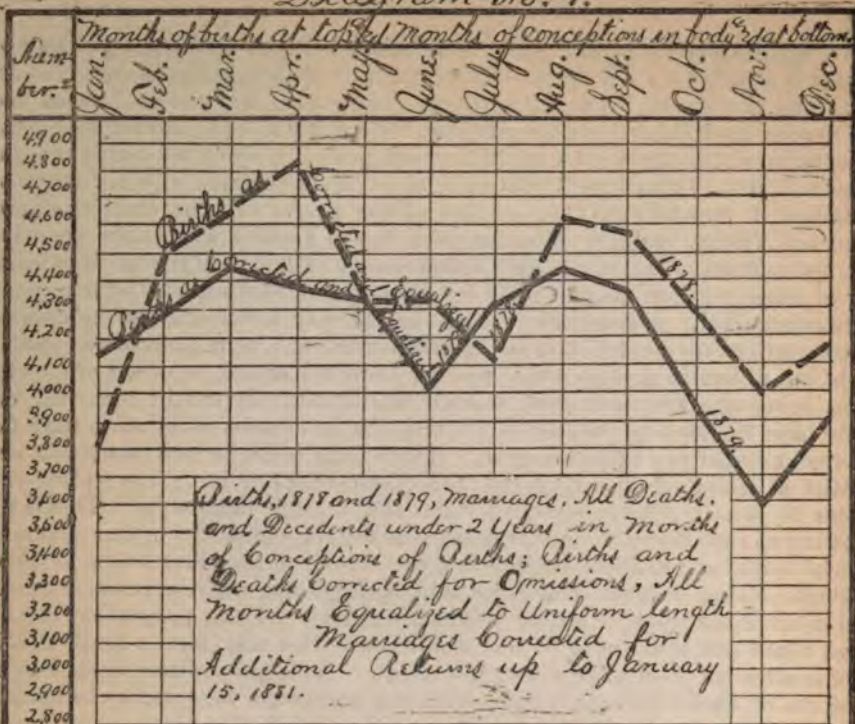 Diagram No. 1.
Months of births at top and Months of conceptions in body and at bottom.
Num-
ber.
Jan. Feb. Mar. Apr. May. June. July. Aug. Sept. Oct. Nov. Dec.
4,900
4,800
4,700
4,600
4,500
4,400
4,300
4,200
4,100
4,000
3,900
3,800
3,700
3,600
3,500
3,400
3,300
3,200
3,100
3,000
2,900
2,800
Births as Corrected and Equalized 1878.
Births as Corrected and Equalized 1879.
1878.
1879.
Births, 1878 and 1879, Marriages, All Deaths,
and Decedents under 2 Years in Months
of Conceptions of Births; Births and
Deaths Corrected for Omissions, All
Months Equalized to Uniform length
Marriages Corrected for
Additional Returns up to January
15, 1881.